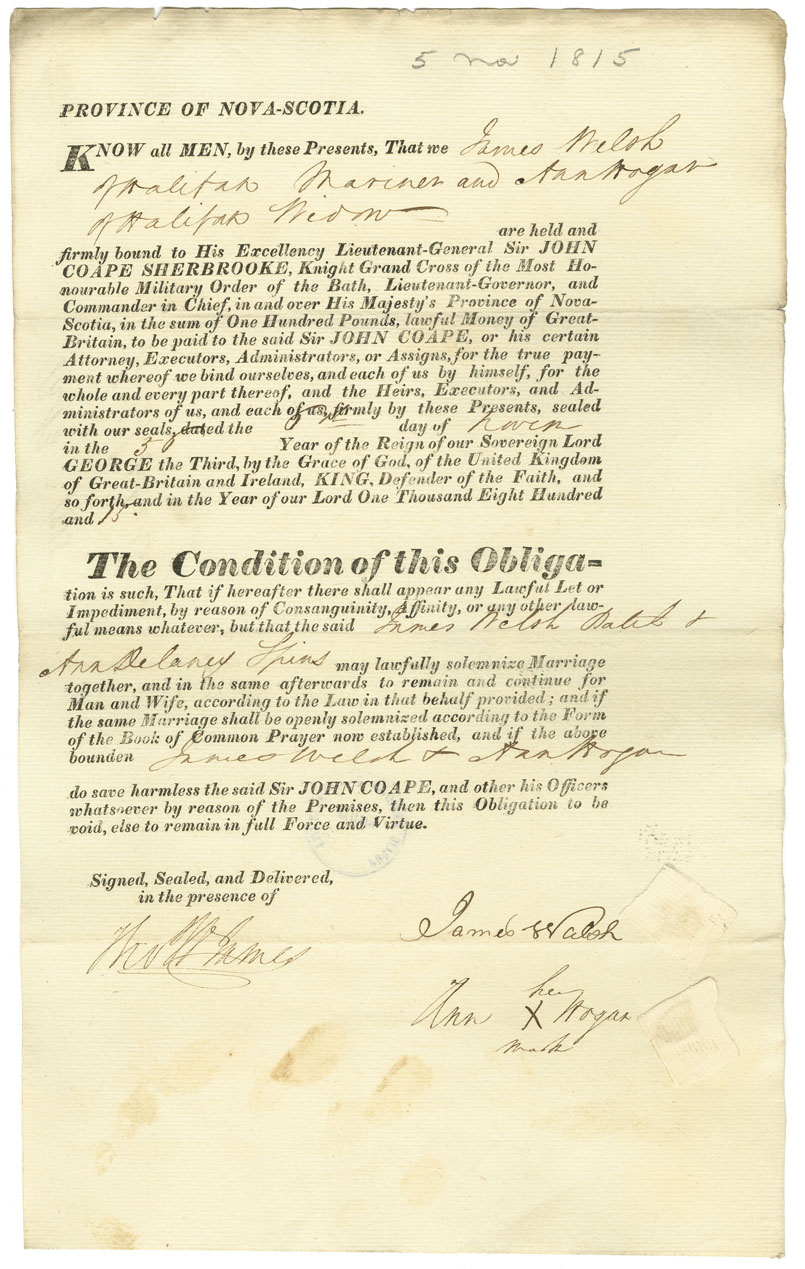 5 Nov 1815
PROVINCE OF NOVA-SCOTIA.
KNOW all MEN, by these Presents, That we James Welsh
of Halifax Mariner and Ann Hogan
of Halifax Widow
are held and
firmly bound to His Excellency Lieutenant-General Sir JOHN
COAPE SHERBROOKE, Knight Grand Cross of the Most Ho-
nourable Military Order of the Bath, Lieutenant-Governor, and
Commander in Chief, in and over His Majesty's Province of Nova-
Scotia, in the sum of One Hundred Pounds, lawful Money of Great-
Britain, to be paid to the said Sir JOHN COAPE, or his certain
Attorney, Executors, Administrators, or Assigns, for the true pay-
ment whereof we bind ourselves, and each of us by himself, for the
whole and every part thereof, and the Heirs, Executors, and Ad-
ministrators of us, and each of us, firmly by these Presents, sealed
with our seals, dated the day of Novem
in the Year of the Reign of our Sovereign Lord
GEORGE the Third, by the Grace of God, of the United Kingdom
of Great-Britain and Ireland, KING, Defender of the Faith, and
so forth, and in the Year of our Lord One Thousand Eight Hundred
and 15.
The Condition of this Obliga-
tion is such, That if hereafter there shall appear any Lawful Let or
Impediment, by reason of Consanguinity, Affinity, or any other law-
ful means whatever, but that the said James Welsh Batch &
Ann Delaney Spins may lawfully solemnize Marriage
together, and in the same afterwards to remain and continue for
Man and Wife, according to the Law in that behalf provided; and if
the same Marriage shall be openly solemnized according to the Form
of the Book of Common Prayer now established, and if the above
bounden James Welsh & Ann Hogan
do save harmless the said Sir JOHN COAPE, and other his Officers
whatsoever by reason of the Premises, then this Obligation to be
void, else to remain in full Force and Virtue.
Signed, Sealed, and Delivered,
in the presence of
James Walsh
James
her
Ann X Hogan
mark